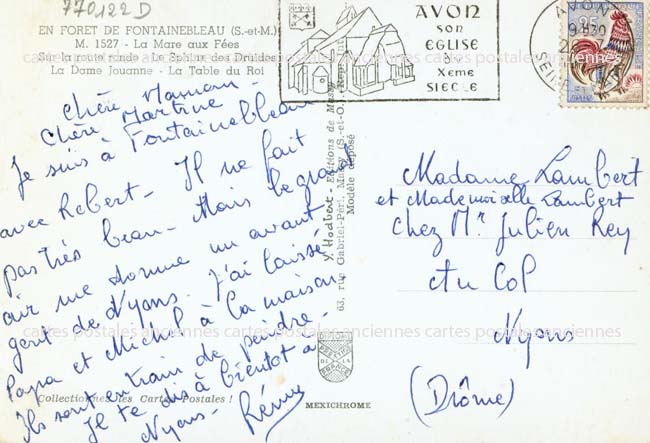 770122 D
EN FORET DE FONTAINEBLEAU (S.-et-M.)
M. 1527 - La Mare aux Fées
Sur la route ronde - Le Sphinx des Druides
La Dame Jouanne - La Table du Roi
Chère Maman -
Chère Martine
Je suis à Fontainebleau
avec Robert - Il ne fait
pas très beau - Mais le grand
air me donne un avant
gout de Nyons. J'ai laissé
Papa et Michel à la maison
Ils sont en train de peindre.
Je te dis à bientôt à
Nyons - Rémy
Collectionnez les Cartes Postales !
MEXICHROME
Y. Hodbert - Editions de Massy
63, rue Gabriel-Péri, Massy (S.-et-O.)
Modèle déposé
AVON
SON
EGLISE
DU
Xeme
SIECLE
AVON
9H30
SEINE
25
Madame Lambert
et Mademoiselle Lambert
chez Mr Julien Rey
Au Col
Nyons
(Drôme)
cartes postales anciennes cartes postales anciennes cartes postales anciennes